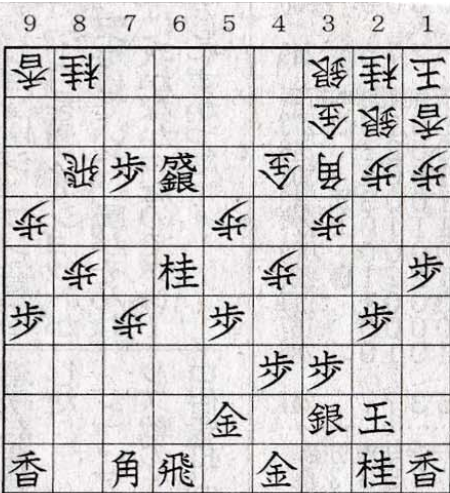 9 8 7 6 5 4 3 2 1
香 桂 銀 桂 王
金 銀 香
飛 歩 金 角 歩 歩
歩 歩 歩
歩 桂 歩 歩
歩 歩 歩 歩
歩 歩
金 銀 玉
香 角 飛 金 桂 香